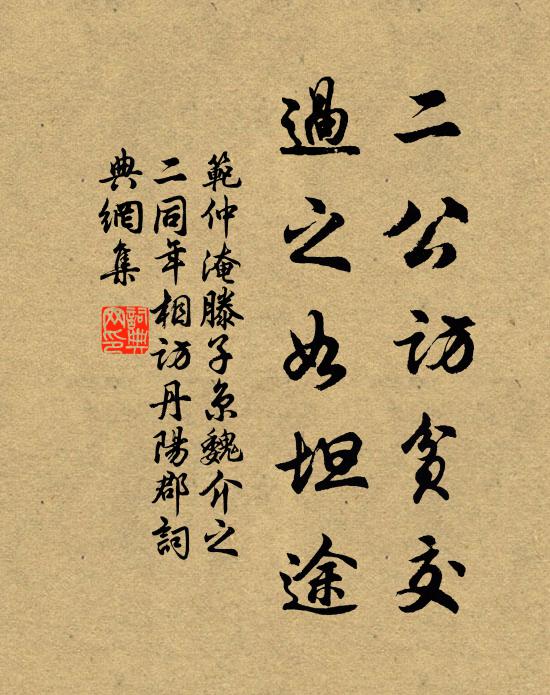 二公访贫交
過之如坦途
範仲淹滕子京魏介之
二同年相访丹陽郡詞
典網集
詞典网印